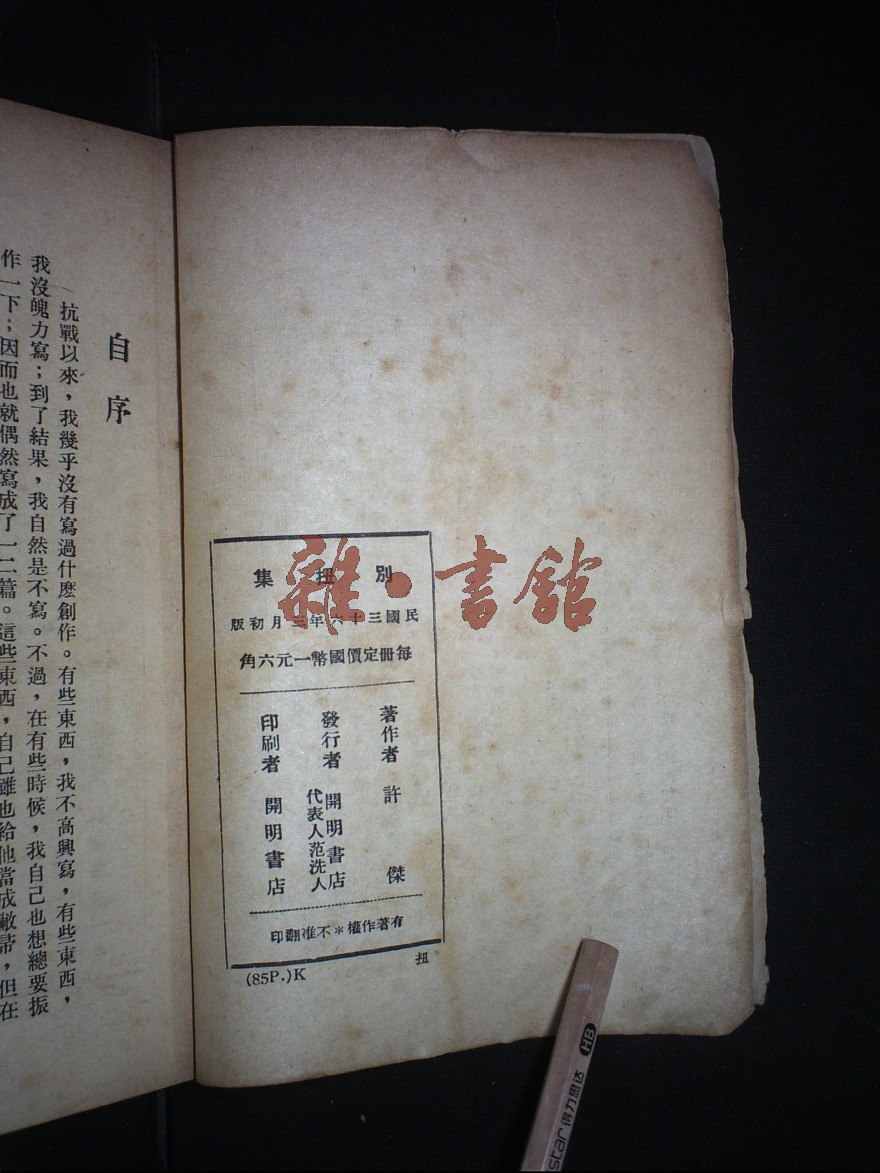 別扭集
民國三十六年三月初版
每冊定價國幣一元六角
著作者 許傑
發行者 開明書店
代表人范洗人
印刷者 開明書店
有著作權＊不准翻印
扭
(85P.)K
自序
抗戰以來，我幾乎沒有寫過什麼創作。有些東西，我不高興寫，有些東西，
我沒魄力寫；到了結果，我自然是不寫。不過，在有些時候，我自己也想總要振
作一下；因而也就偶然寫成了一二篇。這些東西，自己雖也給他當成敝帚，但在
雜·書館
HB
star